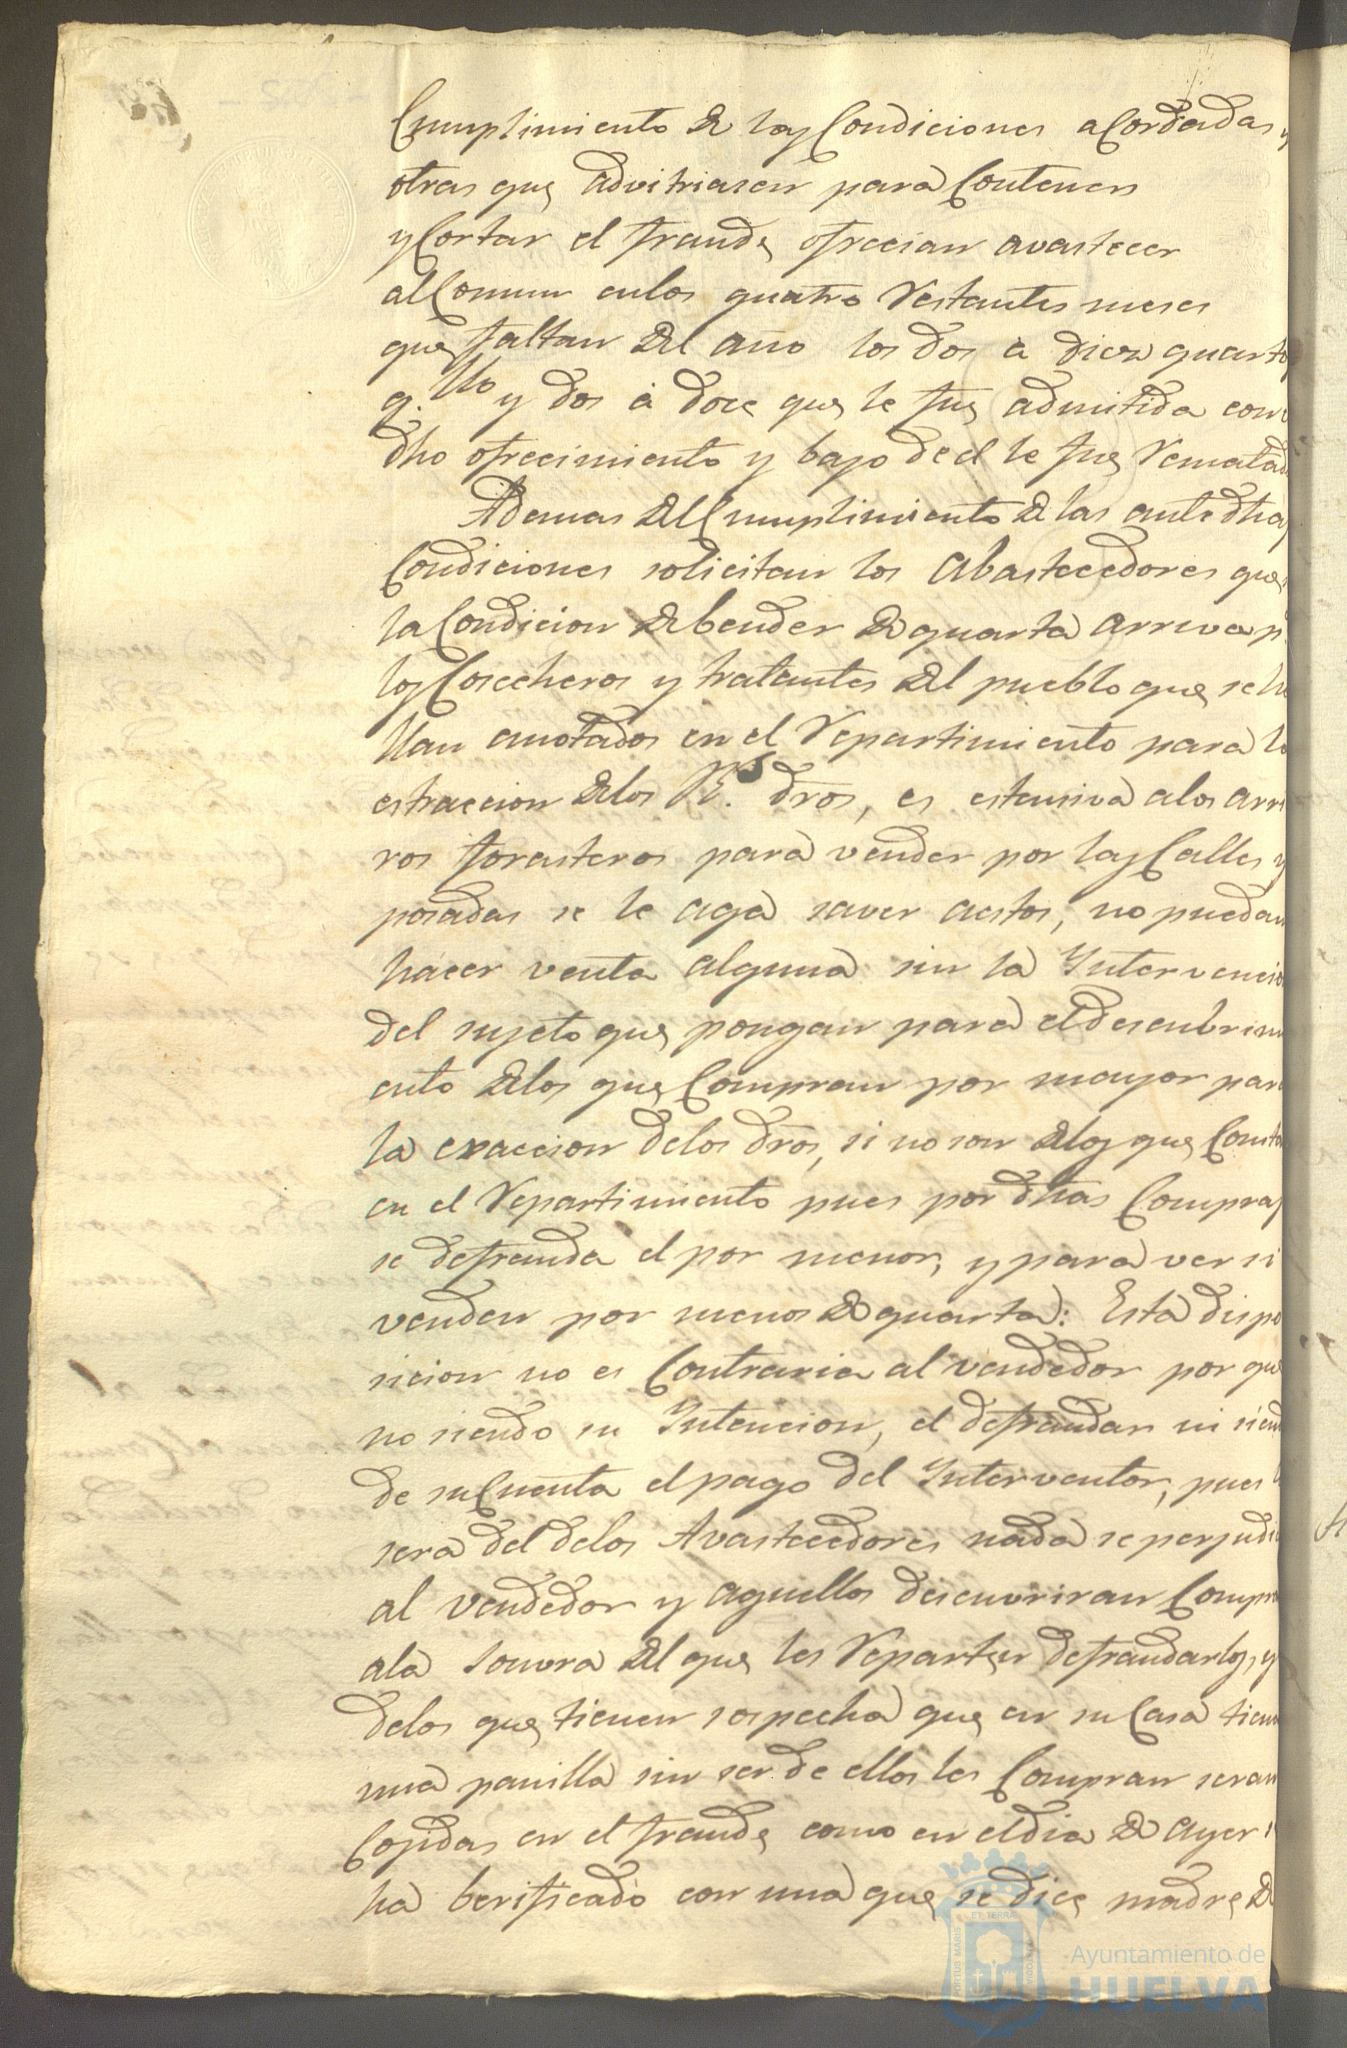 Cumplimiento de las Condiciones acordadas y
otras que advitriasen para Contener
y Cortar el fraude ofrecian avastecer
al Comun en los quatro restantes meses
que faltan del año los dos à diez quartos
q.llo y dos à doce que le fue admitida con
dho ofrecimiento y bajo de el le fue rematado
Ademas del Cumplimiento de las antedhas
Condiciones solicitan los Abastecedores que
la Condicion de bender de quarta arriva p.
los Cosecheros y tratantes del pueblo que se ha
llan anotados en el repartimiento para la
estraccion de los R.s dros, es estensiva a los arrie
ros forasteros para vender por las Calles y
posadas se le aga saver aestos, no puedan
hacer venta alguna sin la Intervencion
del sujeto que pongan para el descubrimi
ento de los que Compran por mayor para
la exaccion de los dros, si no son de los que Constan
en el repartimiento pues por dhas Compras
se defrauda el por menor, y para ver si
venden por menos de quarta: Esta dispo
sicion no es Contraria al vendedor por que
no siendo su Intencion, el defraudar ni siendo
de su Cuenta el pago del Interventor, pues
sera del delos Avastecedores nada se perjudica
al vendedor y aquellos descuvriran Compra
ala sonvra del que les reparten defraudarlos, y
delos que tienen sospecha que en su Casa tienen
una panilla sin ser de ellos les Compran seran
Cojidas en el fraude como en el dia de ayer se
ha berificado con una que se dice madre de
PORTUS MARIS ET TERRÆ CUSTODIA
Ayuntamiento de
HUELVA